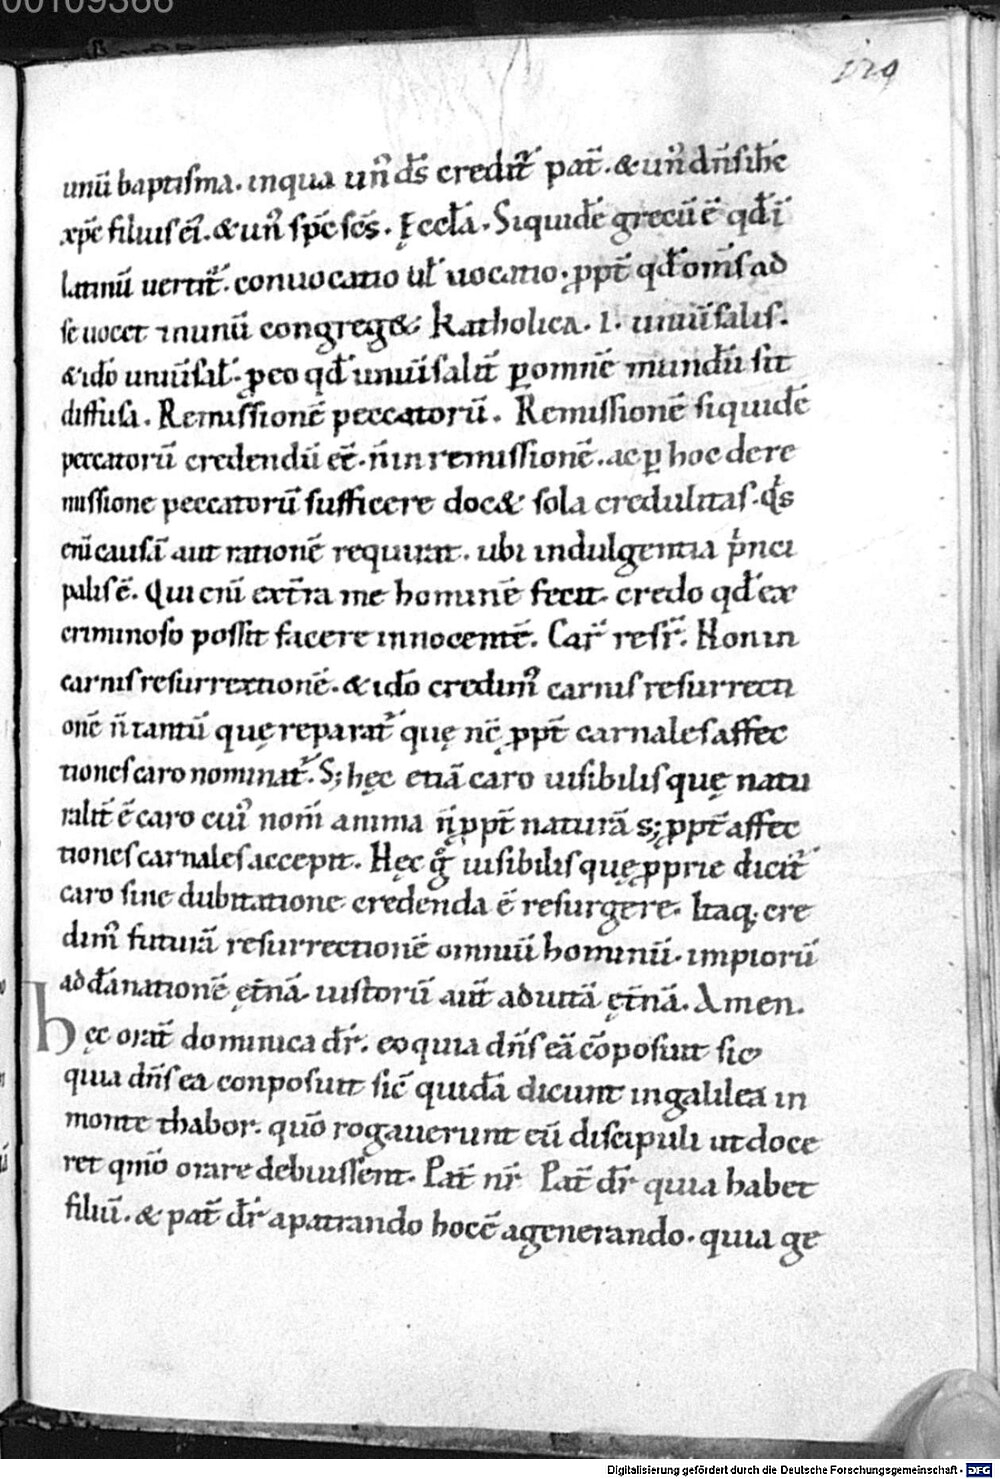 00109366
129
unū baptisma. inqua un᾽ dс̄ credit᷑ pat̄. & un᾽ dn̄s ihc̄
xpc̄ filius ei᾽. & un᾽ spc̄ sc̄s. Ęccl̄a. Siquidē grecū ē qd̄ ī
latinū vertit᷑. convocatio ul̄ uocatio. ꝓpt̄ qd̄ om̄s ad
se uocet ⁊ inunū congreg&. Katholica. .i. univ̄salis.
& ido̅ univ̄sal̄. ꝓeo qd̄ univ̄salit̄ ꝑomnē mundū sit
diffusa. Remissionē peccatorū. Remissionē siquidē
peccatorū credendū ēē. n̄ in remissionē. ac ꝑ hoc de re
missione peccatorū sufficere doc& sola credulitas. q̇s
enī causā aut rationē requirat. ubi indulgentia p̍nci
palis ē. Qui enī ext̄ra me hominē fecit. credo qd̄ ex
criminoso possit facere innocentē. Car᷑ resr̄. Non in
carnis resurrectionē. & ido̅ credim᾽ carnis resurrecti
onē n̄ tantū quę reparat᷑ quę nc̄ ꝓpt̄ carnales affec
tiones caro nominat᷑. S; hęc etiā caro uisibilis quę natu
ralit̄ ē caro cui᾽ nom̄ anima n̄ ꝓpt̄ naturā s; ꝓpt̄ affec
tiones carnales accepit. Hęc g̊ uisibilis quę ꝓprie dicit᷑
caro sine dubitatione credenda ē resurgere. Itaq; cre
dim᾽ futurā resurrectionē omniū hominū. impiorū
ad dānationē ęt̄nā. iustorū aut̄ ad uitā ęt̄nā. Amen.
Hęc orat̄ dominica dr̄. eo quia dn̄s eā cōposuit sic
quia dn̄s ea conposuit sic̄ quidā dicunt in galilea in
monte thabor. quo̅ rogauerunt eū discipuli ut doce
ret qm̅o orare debuissent. Pat̄ nr̄ Pat̄ dr̄ quia habet
filiū. & pat̄ dr̄ a patrando hoc ē a generando. quia ge
Digitalisierung gefördert durch die Deutsche Forschungsgemeinschaft - DFG